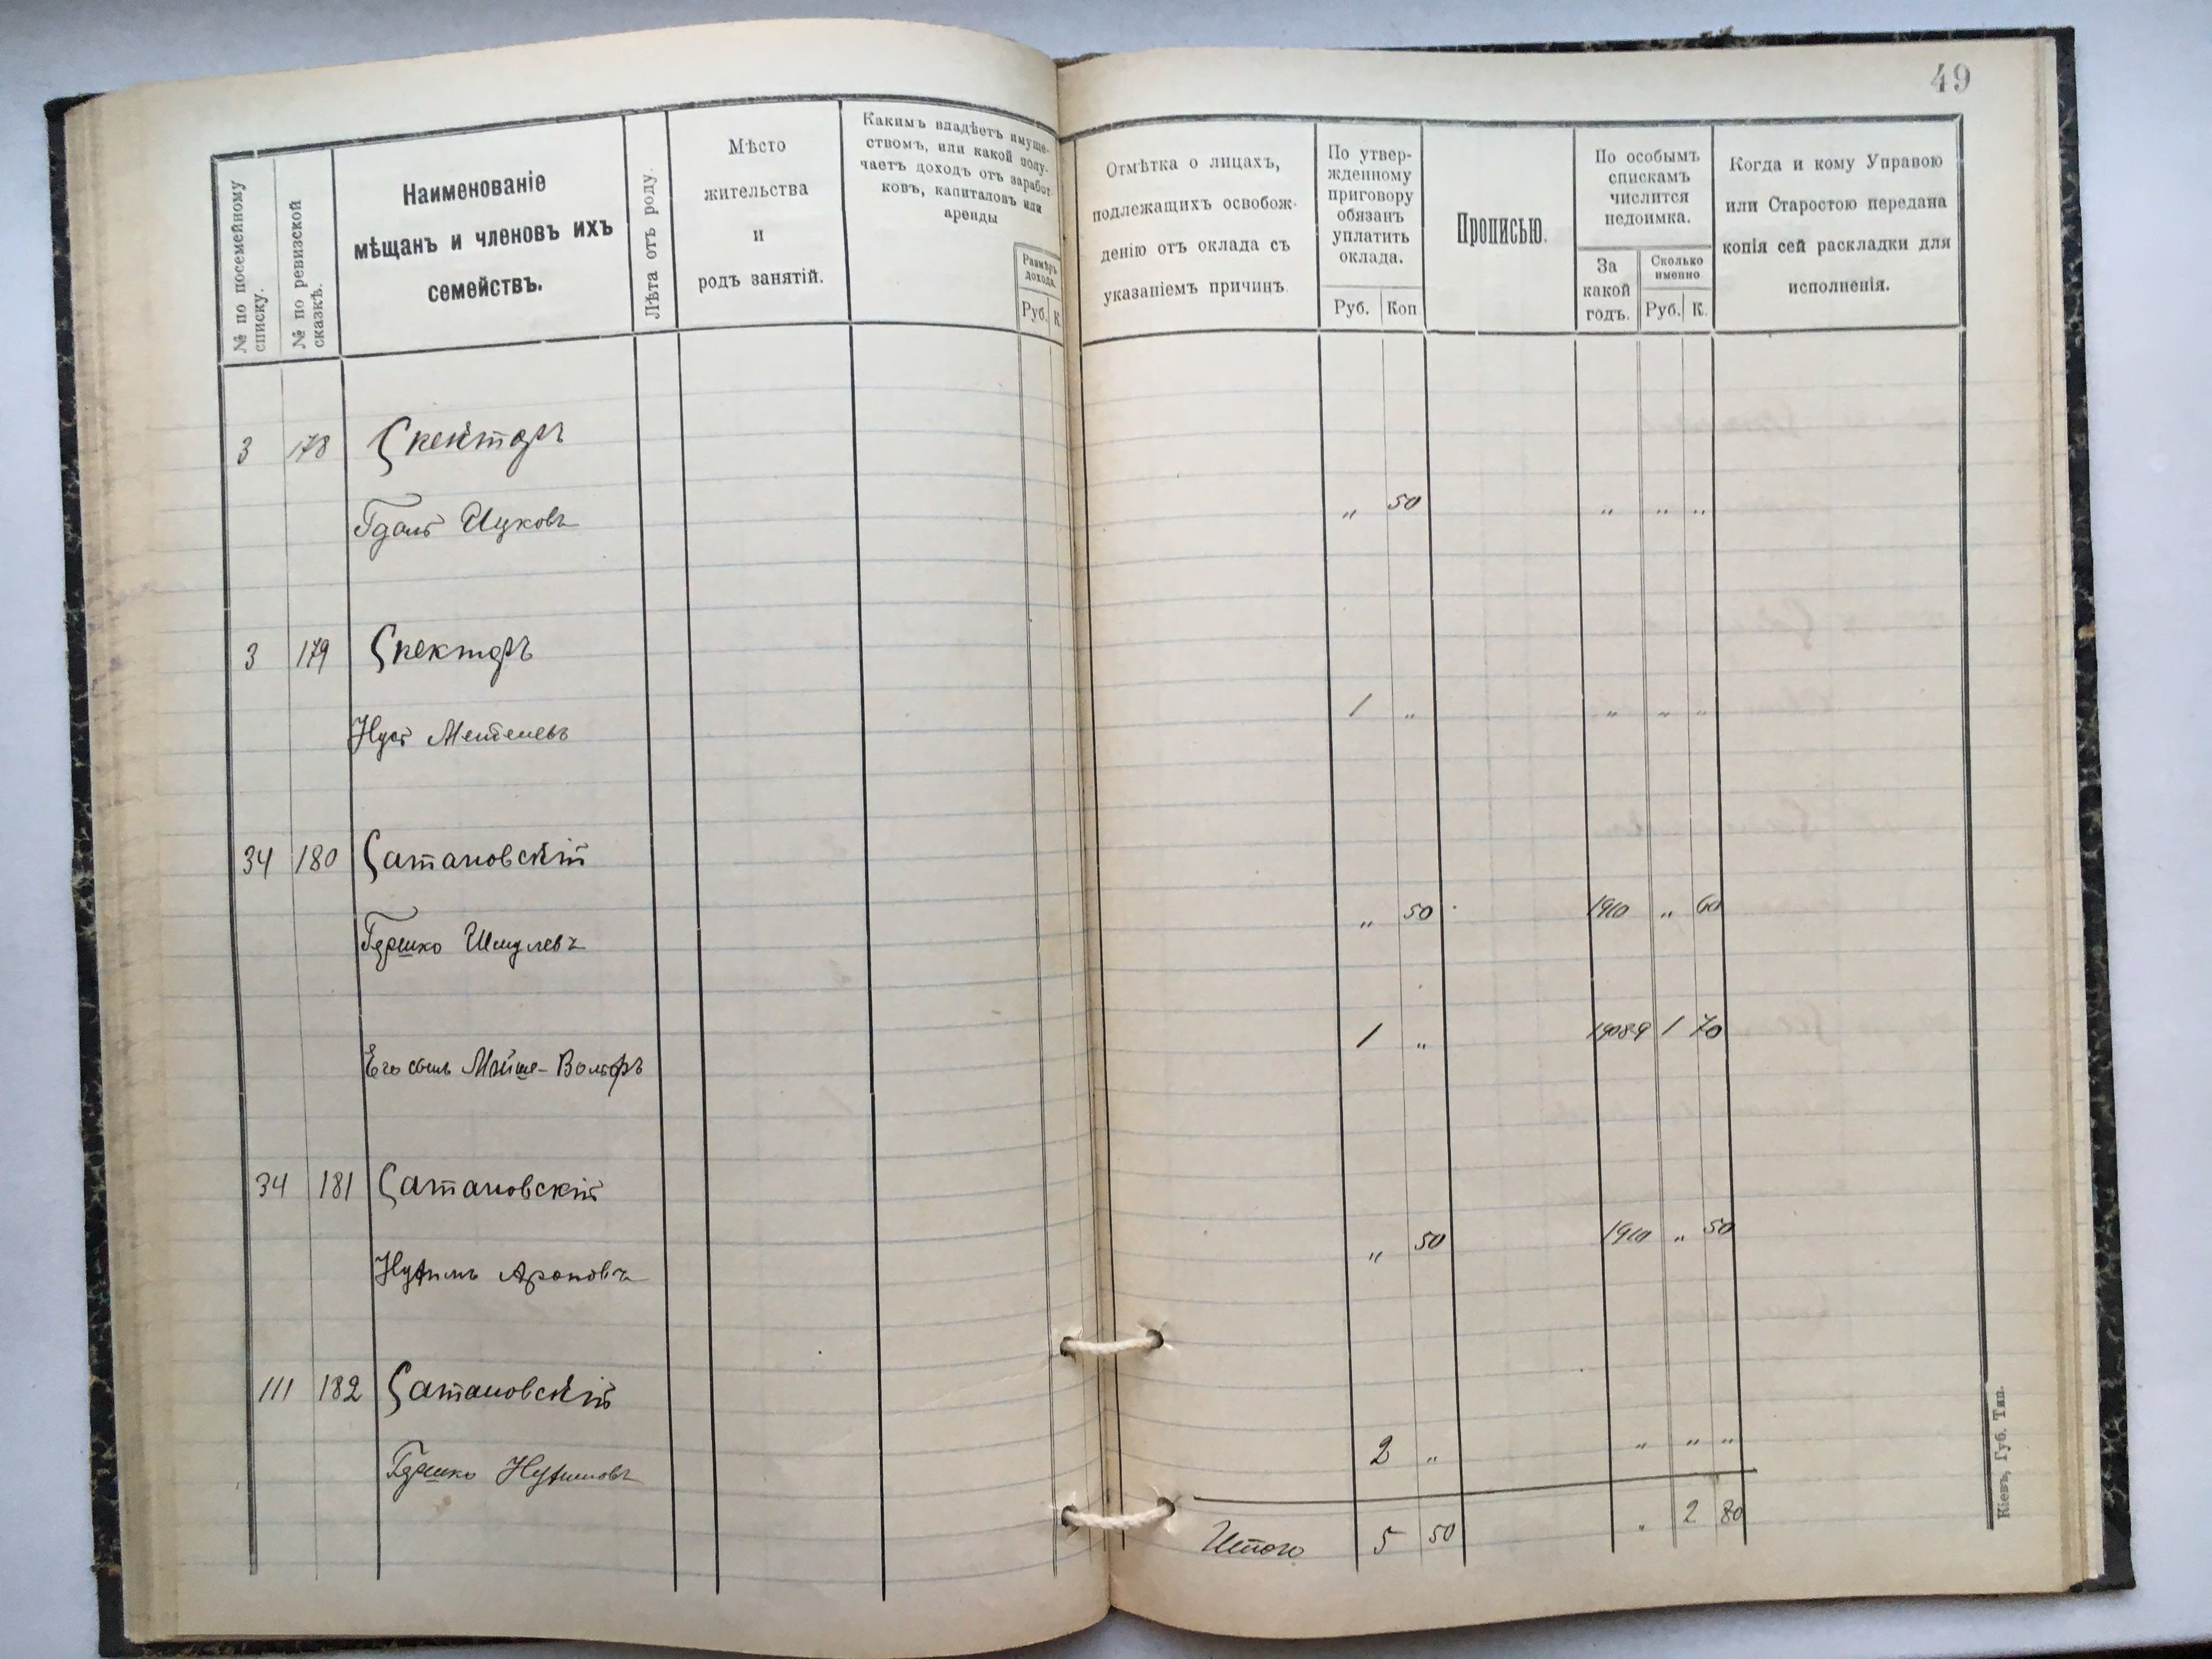 49
№ по посемейному
списку.
№ по ревизской
сказкѣ.
Наименованіе
мѣщанъ и членовъ ихъ
семействъ.
Лѣта отъ роду.
Мѣсто
жительства
и
родъ занятій.
Какимъ владѣетъ имуще-
ствомъ, или какой полу-
чаетъ доходъ отъ заработ-
ковъ, капиталовъ или
аренды
Размѣръ
дохода.
Руб. К
Отмѣтка о лицахъ,
подлежащихъ освобож-
денію отъ оклада съ
указаніемъ причинъ.
По утвер-
жденному
приговору
обязанъ
уплатить
оклада.
Руб. Коп
Прописью.
По особымъ
спискамъ
числится
недоимка.
За
какой
годъ.
Сколько
именно
Руб. К.
Когда и кому Управою
или Старостою передана
копія сей раскладки для
исполненія.
3 178 Спекторъ
Гдаль Ицковъ „ 50 „ „ „
3 179 Спекторъ
Нусъ 1 „ „ „ „
34 180 Сатановскій
Гершко Шмулевъ „ 50 1910 „ 60
Его сынъ Мойше-Вольфъ 1 „ 1908-9 1 70
34 181 Сатановскій
Нухимъ Ароновъ „ 50 1910 „ 50
111 182 Сатановскій
Гершко Нухимовъ 2 „ „ „ „
Итого 5 50 „ 2 80
Кіевъ, Губ. Тип.